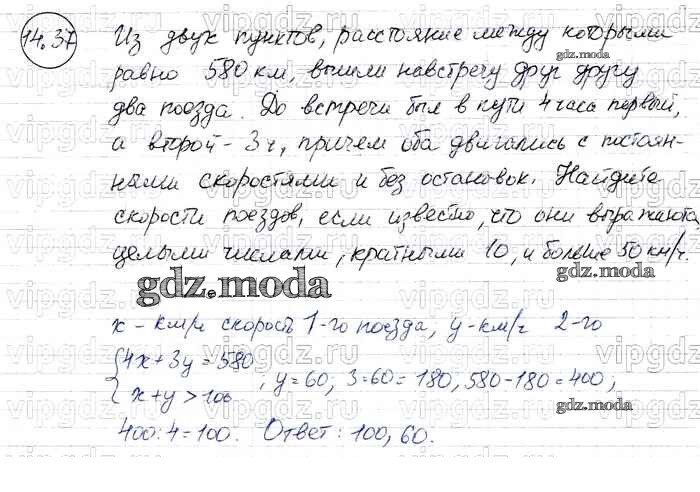 14.37 Из двух пунктов, расстояние между которыми
равно 580 км, вышли навстречу друг другу
два поезда. До встречи был в пути 4 часа первый,
а второй - 3 ч, причем оба двигались с постоян-
ными скоростями и без остановок. Найдите
скорости поездов, если известно, что они выражаются
целыми числами, кратными 10, и больше 50 км/ч.
gdz.moda
x - км/ч скорость 1-го поезда, y - км/ч 2-го
{4x + 3y = 580
x + y > 100, y = 60, 3 = 60 = 180, 580 - 180 = 400;
400 : 4 = 100. Ответ: 100, 60.